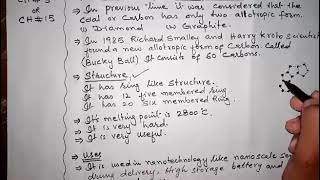 OF
CH#15
→ In previous time it was considered that the
Coal or Carbon has only two allotropic form.
(i) Diamond (ii) Graphite.
→ In 1985 Richard Smalley and Harry Kroto Scientist
found a new allotropic form of Carbon Called
(Bucky Ball) It consists of 60 Carbons.
→ Structure
It has ring like Structure.
It has 12 five membered ring
It has 20 Six membered Ring.
→ It's melting point is 2800°C.
→ It is very hard.
→ It is very useful.
→ Uses
→ It is used in nanotechnology like nanoscale
drug delivery, High storage battery and